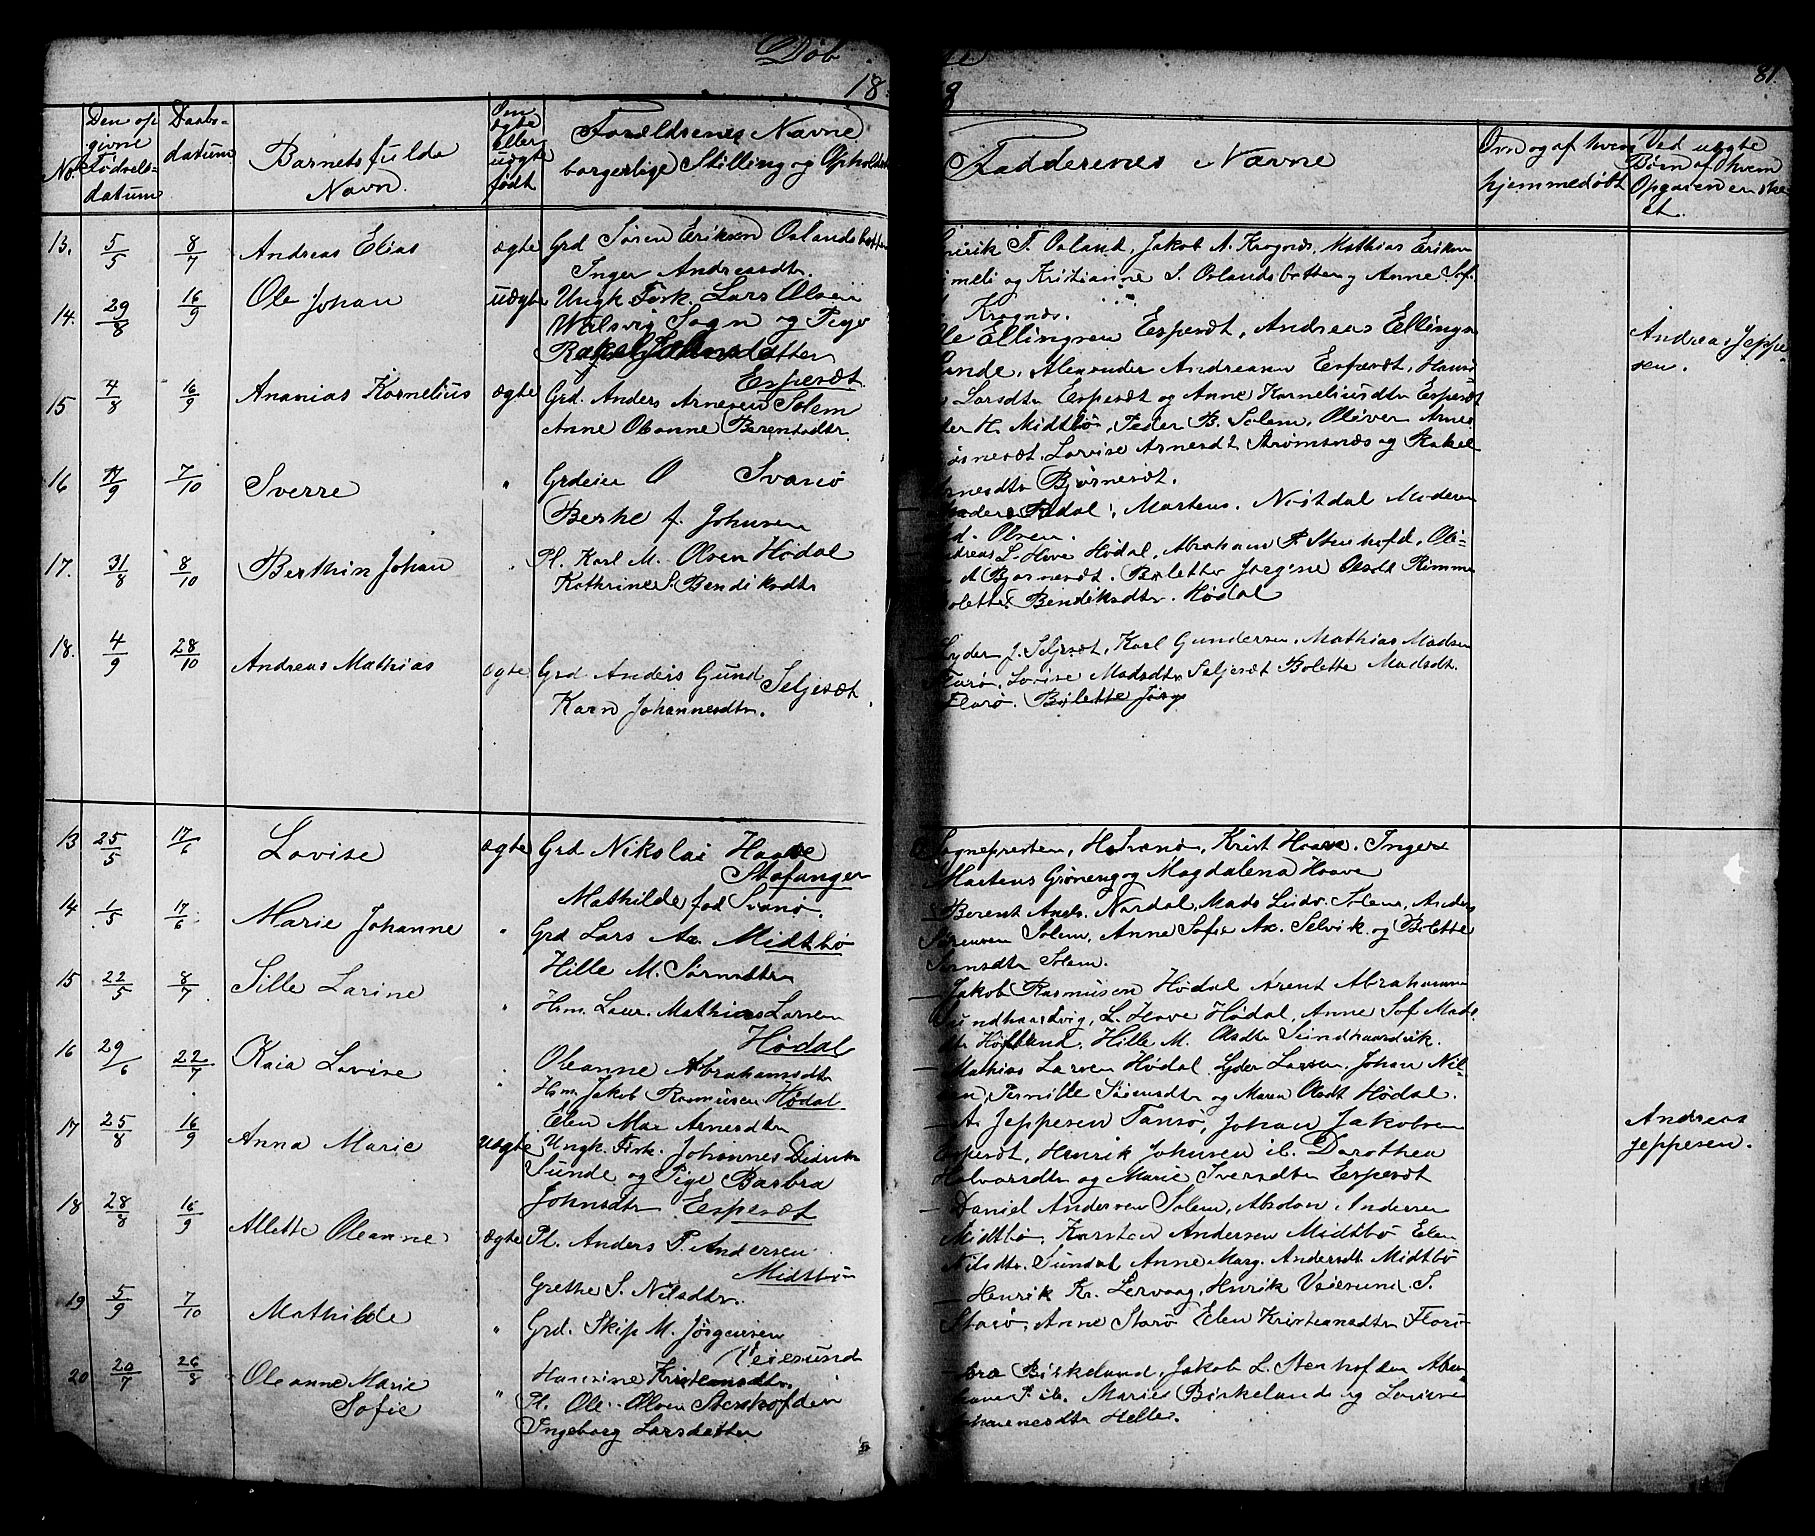 Döb
18
81
Den op
givne
No. Fødsels-
datum
Daabs-
datum
Barnets fulde
Navn.
Om
ægte
Eller
uægte
født
Forældrenes Navne
borgerlige Stilling og Opholds
Fadderenes Navne
Om og af hvem
hjemmedøbt
Ved uægte
Børn af hvem
Opgaven er ske
et.
13. 5/5 8/7 Andreas Elias ægte Grd Søren Eriksen Oslandsbotten
Inger Andreasdtr.
T. Osland, Jakob A. Krognæs, Mathias Eriksen
og Kristianne S. Oslandsbotten og Anne Sof.
Krognæs.
14. 29/8 16/9 Ole Johan uægte Ungk. Fisk. Lars Olsen
Sogn og Pige
Espesæt
Ellingsen Espesæt, Andreas Ellings
Alexander Andreasen Espesæt, Hans
Larsdtr Espesæt og Anne Korneliusdtr Espesæt
Andreas Jeppe
sen.
15 4/8 16/9 Ananias Kornelius ægte Grd. Anders Arnesen Solem
Anne Oleanne Berentsdtr.
H. Midtbø, Peder B. Solem, Oliver Arnes
Lovise Arnesdt Strømsnæs og Rakel
Bjørnesæt.
16 9 7/10 Sverre " Grdeier O Svanø
Berke f. Johnsen
Martens. Nøstdal Moderen
Olsen.
17. 31/8 8/10 Berthin Johan " Pl. Karl M. Olsen Hødal
Kathrine S. Bendiksdtr
L. Hove Hødal, Abraham P. Stenhofd, Oli-
Bjørnesæt. Bolette Jørgine Olsdt Rimme
Bendiksdtr. Hødal
18. 4/9 28/10 Andreas Mathias ægte Grd Anders Gund Seljesæt
Karn Johannesdtr.
Lyder J. Seljesæt, Karl Gundersen, Mathias Madsen
Florø, Lovise Madsdtr Seljesæt Bolette Madsdt.
Florø. Bolette Jørg
13 25/5 17/6 Lovise ægte Grd Nikolai Haave
Stafanger
Mathilde fød Svanø.
Sognepresten, H. Svanø, Krist Haave. Inger
Martens Grøneng og Magdalena Haave
14 1/5 17/6 Marie Johanne " Grd Lars Ax. Midtbø
Hille M. Sørnsdtr
Berent Anels. Nordal, Mads Ludv. Solem, Anders
Sørensen Solem, Anne Sofie Ax. Selvik og Bolette
Solem.
15 22/5 8/7 Sille Larine " Hsm. Laur. Mathias Larsen
Hødal
Oleanne Abrahamsdtr
Jakob Rasmusen Hødal Arent Abrahamsen
L. Hove Hødal, Anne Sof Mads.
Hille M. Olsdtr
16 29/6 22/7 Kaia Lovise " Hsm. Jakob Rasmusen Hødal
Elen Mar Arnesdtr
Mathias Larsen Hødal Lyder Larsen Johan Nil-
Pernille Sørensdtr og Maren Olsdt Hødal.
17 25/8 16/9 Anna Marie uægte Ungk. Fisk. Johannes Didriks
Sunde og Pige Barbra
Johnsdtr Espesæt
A. Jeppesen Tansø, Johan Jakobsen
Espesæt, Henrik Johnsen ib. Dorothea
Halvorsdtr og Marie Iversdtr Espesæt
Andreas
Jeppesen.
18 28/8 16/9 Allette Oleanne ægte Pl. Anders P. Andersen
Midtbø
Grethe S. Nilsdtr.
Daniel Andersen Solem, Absalon Andersen
Midtbø, Karsten Andersen Midtbø Elen
Nilsdtr. Sundal Anne Marg. Andersdt Midtbø
19 5/9 7/10 Mathilde " Grd. Skip M. Jörgensen
Veiesund
Hansine Kristensdtr.
Henrik Kr. Lervaag, Henrik Veiesund S.
Anne Starø Elen Kristiansdtr Florø
20 20/7 26/8 Oleanne Marie
Sofie " Pl. Ole Olsen Stenhofden
Ingeborg Larsdatter
Birkeland, Jakob L. Stenhofden
ib. Marie Birkeland og Lovise
Helle.